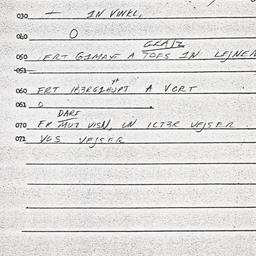 030 — IN VINKL,
040 O
GRAIZ
050 FRT GIMAVT A TOFS IN LEJNER
051
060 FRT A VORT
061 O .
DARF
070 ER MUZ VISN, UN ICT3R VEJSER
071 VOS VEJSER